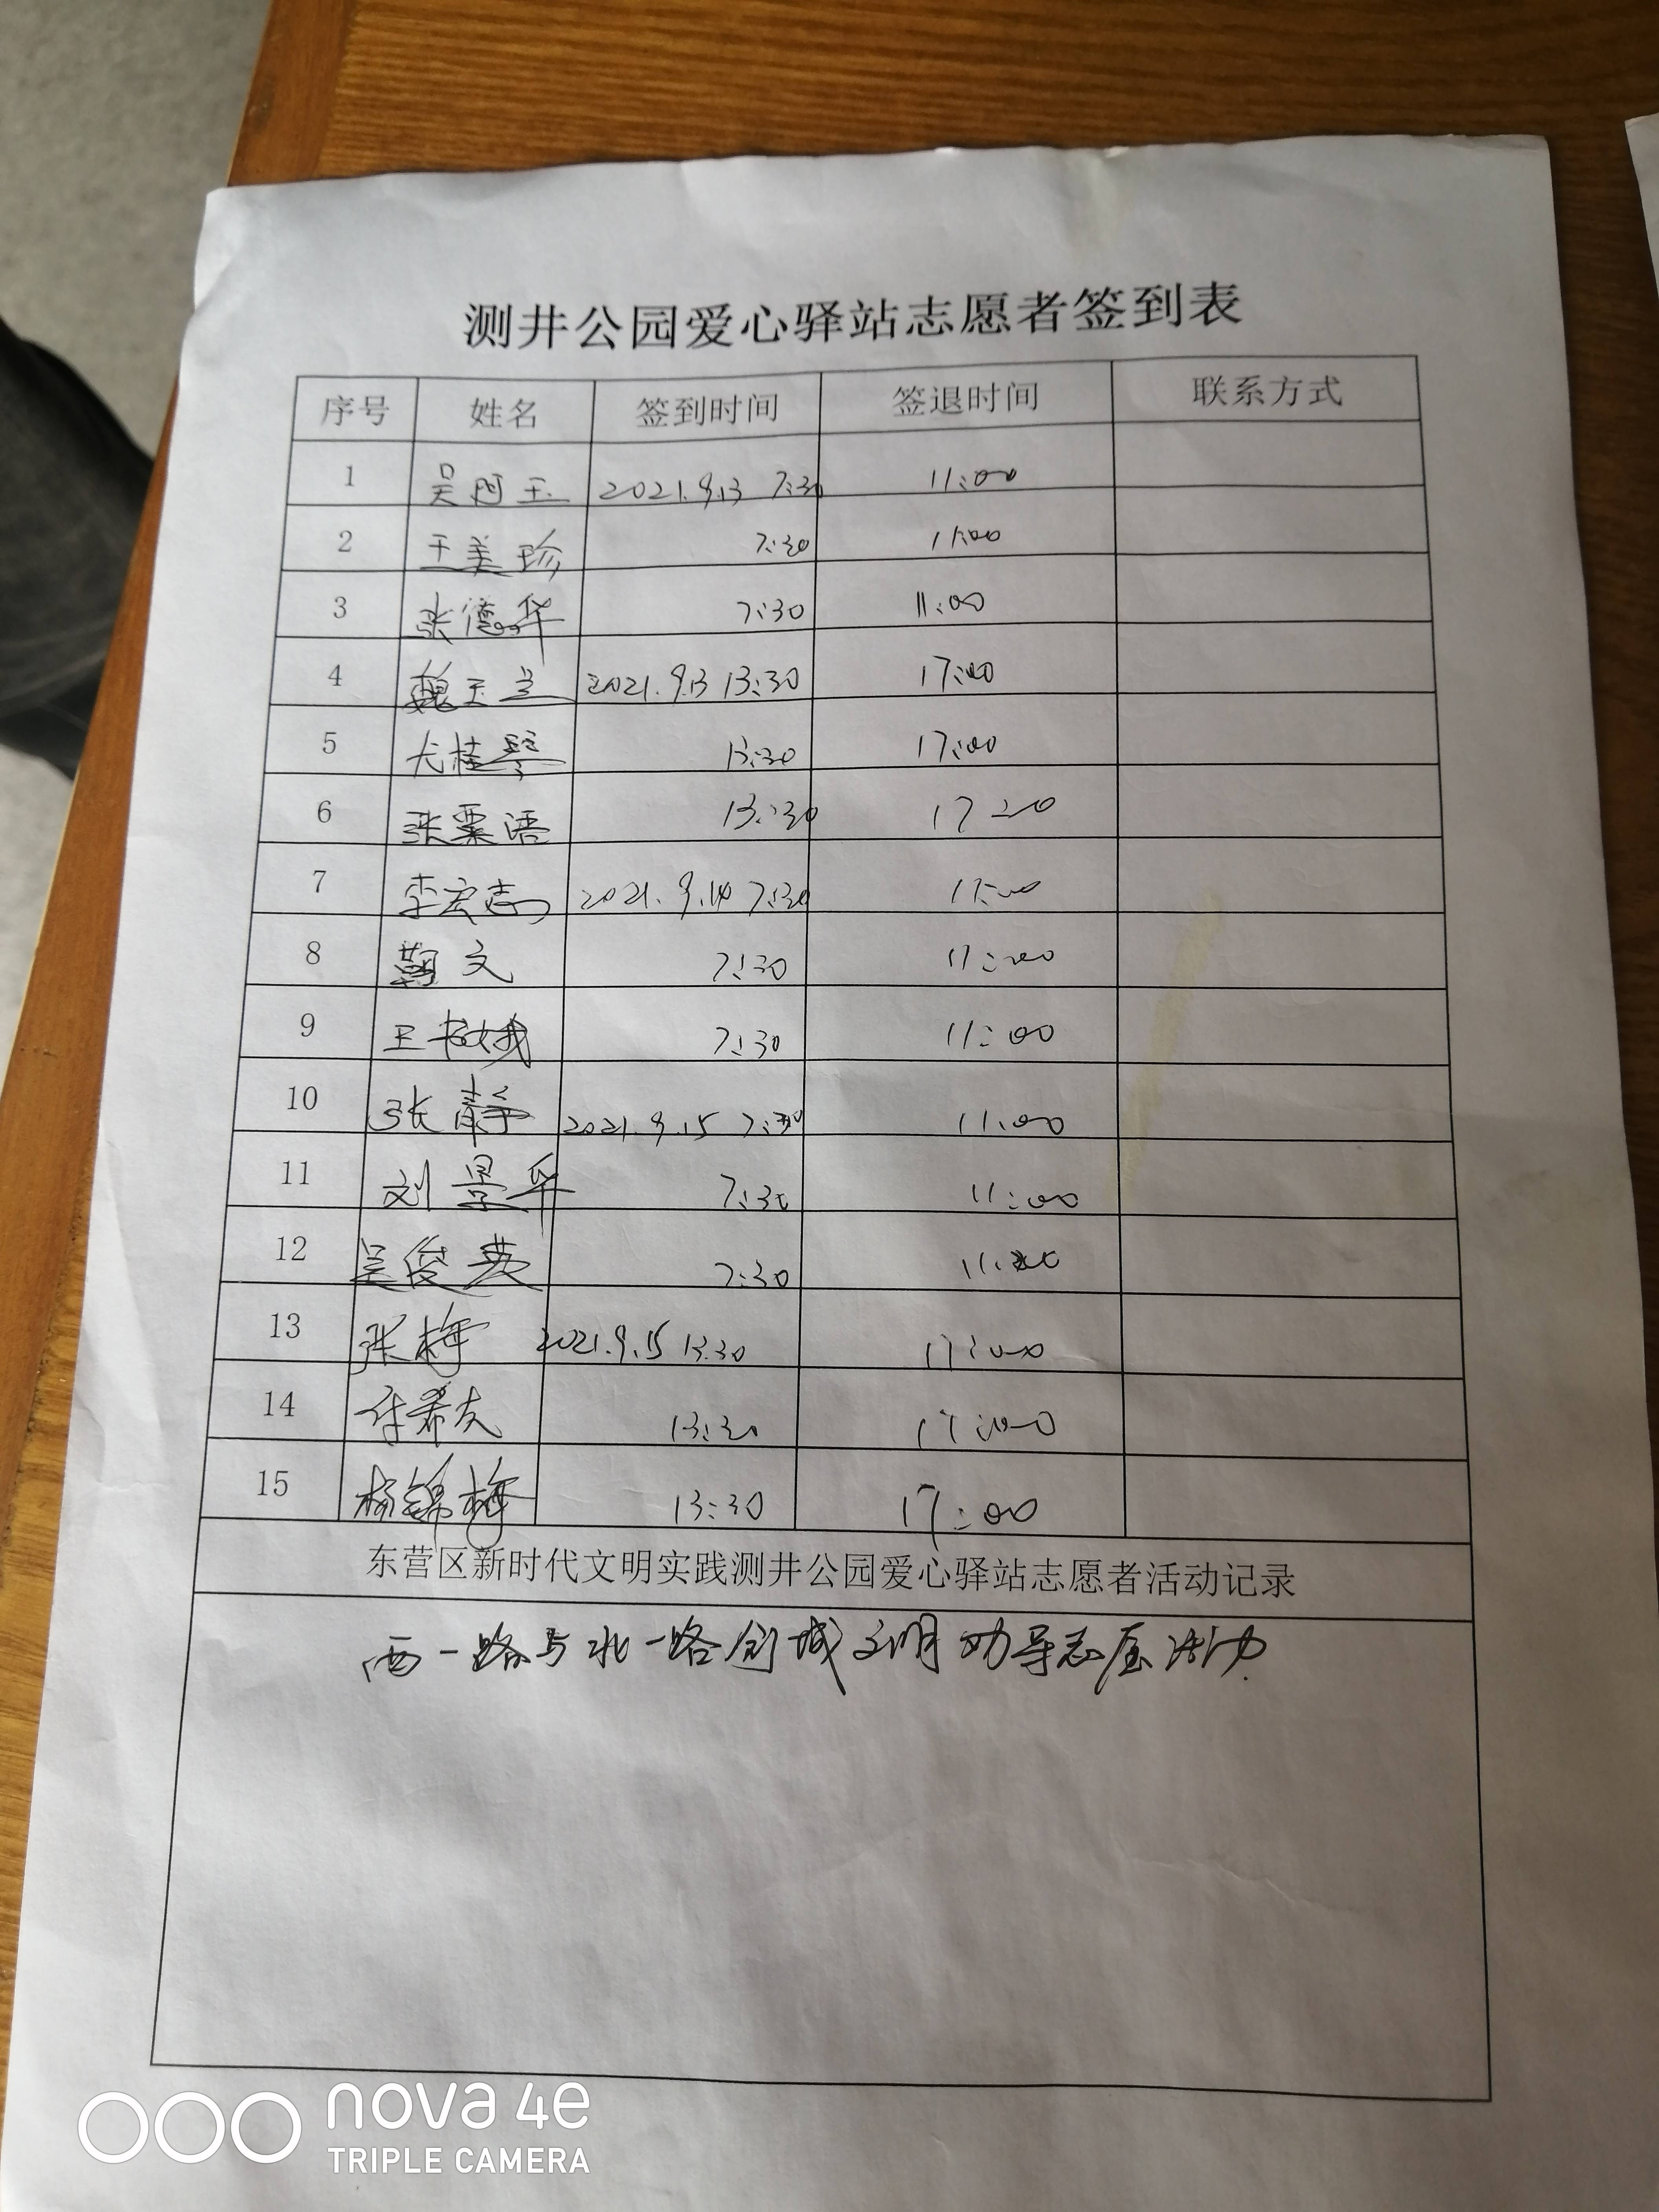 测井公园爱心驿站志愿者签到表
序号 姓名 签到时间 签退时间 联系方式
1 吴阿玉 2021.9.13 7:30 11:00
2 王美珍 7:30 11:00
3 张德华 7:30 11:00
4 魏玉兰 2021.9.13 13:30 17:00
5 尤桂琴 13:30 17:00
6 张粟语 13:30 17:00
7 李宏志 2021.9.14 7:30 11:00
8 靳文 7:30 11:00
9 王书娥 7:30 11:00
10 张静 2021.9.15 7:30 11:00
11 刘景华 7:30 11:00
12 吴俊英 7:30 11:00
13 张梅 2021.9.15 13:30 17:00
14 希友 13:30 17:00
15 杨锦梅 13:30 17:00
东营区新时代文明实践测井公园爱心驿站志愿者活动记录
西一路与北一路创城文明劝导志愿活动.
nova 4e
TRIPLE CAMERA